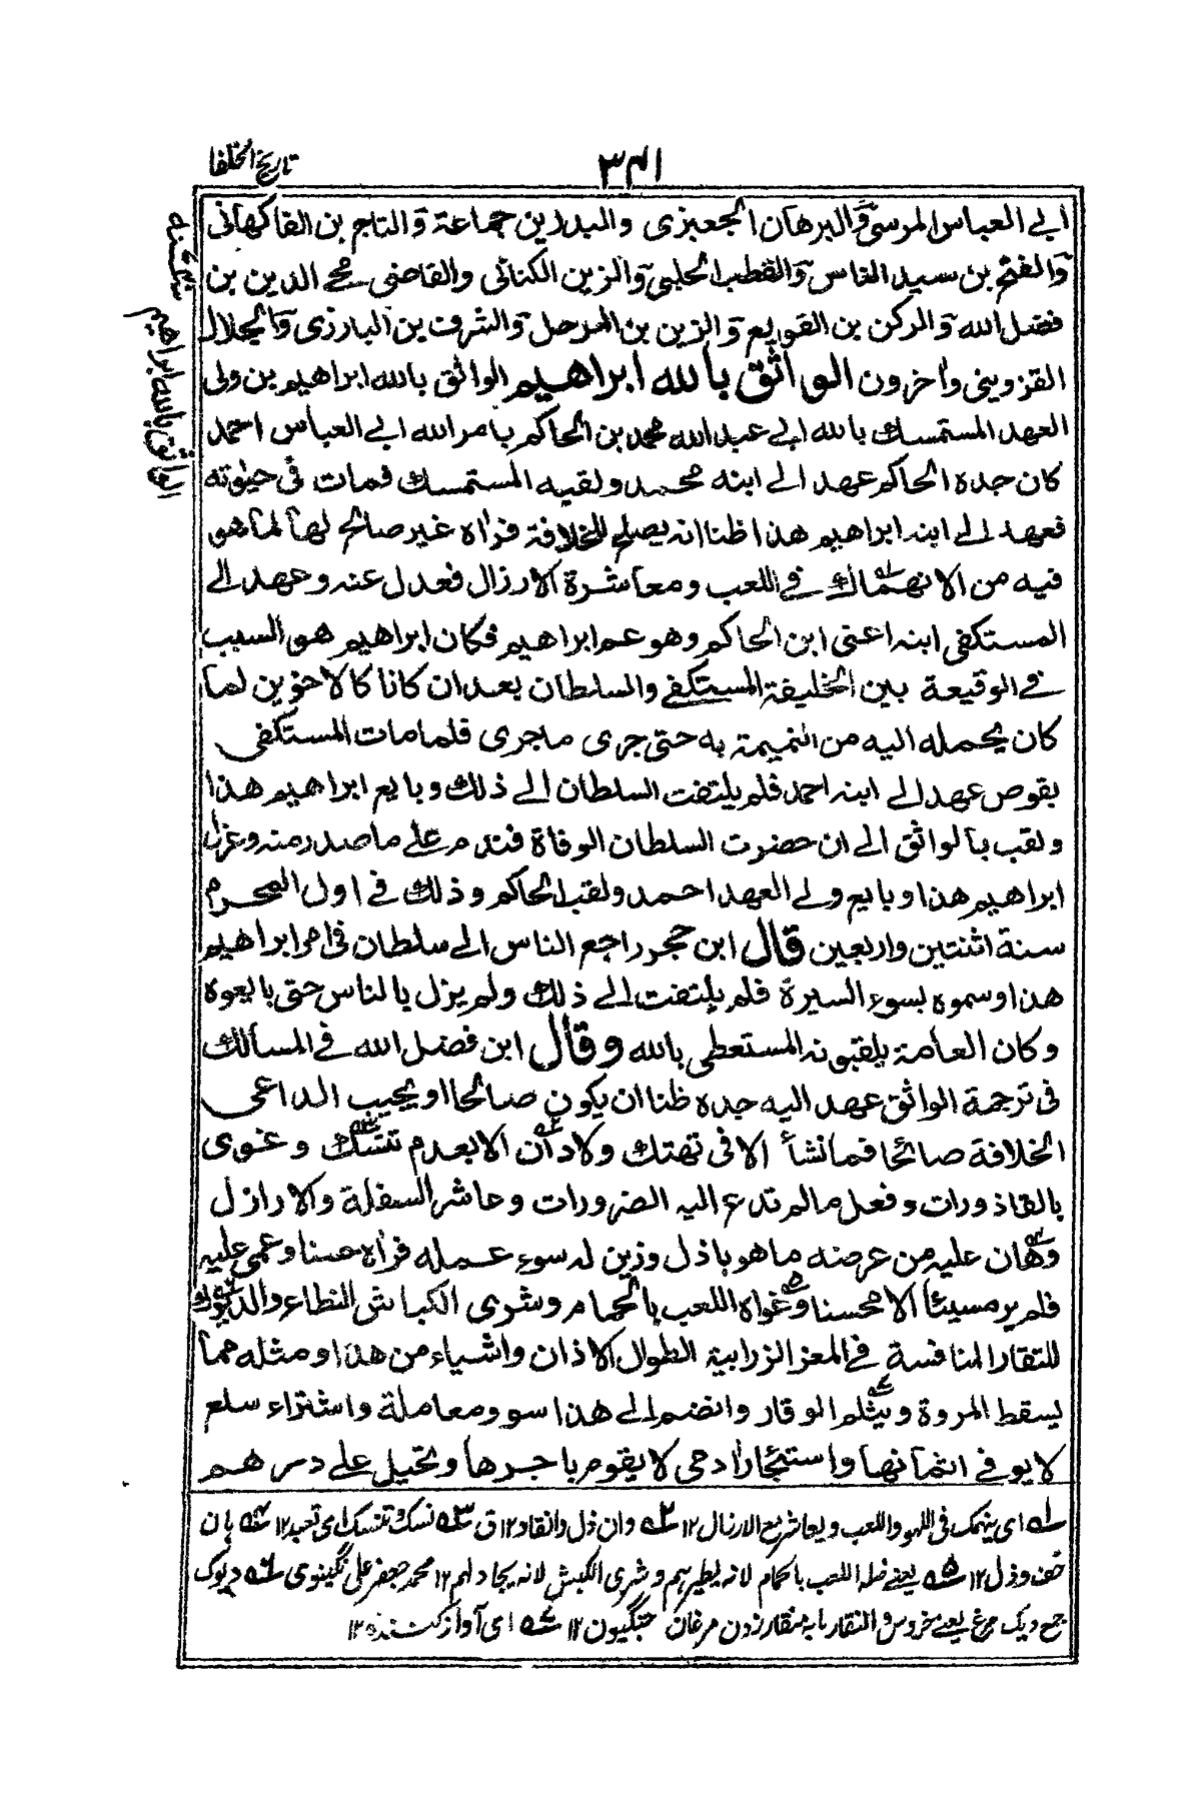 تاريخ الخلفا
٣٤١
ابي العباس المرسي والبرهان الجعبري والبدر بن جماعة والتاج بن الفاكهاني
والفتح بن سيد الناس والقطب الحلبي والزين الكناني والقاضي محي الدين بن
فضل الله والركن بن القويع والزين بن المرحل والشرف بن البارزي والجلال
القزويني واخرون الواثق بالله ابراهيم الواثق بالله ابراهيم بن ولي
العهد المستمسك بالله ابي عبد الله محمد بن الحاكم بامر الله ابي العباس احمد
كان جده الحاكم عهد الى ابنه محمد ولقبه المستمسك فمات في حيوته
فعهد الى ابنه ابراهيم هذا ظنا انه يصلح للخلافة فراه غير صالح لها لما هو
فيه من الانهماك في اللعب ومعاشرة الارزال فعدل عنه وعهد الى
المستكفي ابنه اعني ابن الحاكم وهو عم ابراهيم فكان ابراهيم هو السبب
في الوقيعة بين الخليفة المستكفي والسلطان بعد ان كانا كالاخوين لما
كان يحمله اليه من النميمة به حتى جرى ماجرى فلما مات المستكفي
بقوص عهد الى ابنه احمد فلم يلتفت السلطان الى ذلك وبايع ابراهيم هذا
ولقب بالواثق الى ان حضرت السلطان الوفاة فندم على ما صدر منه وعزل
ابراهيم هذا وبايع ولي العهد احمد ولقب الحاكم وذلك في اول المحرم
سنة اثنتين واربعين قال ابن حجر راجع الناس الى سلطان في امر ابراهيم
هذا وسموه بسوء السيرة فلم يلتفت الى ذلك ولم يزل بالناس حتى بايعوه
وكان العامة يلقبونه المستعطي بالله وقال ابن فضل الله في المسالك
في ترجمة الواثق عهد اليه جده ظنا ان يكون صالحا او يجيب الداعي
الخلافة صالحا فما نشأ الا في تهتك ولا دان الا بعدم تنسك وغوى
بالقاذورات وفعل ما لم تدع اليه الضرورات وعاشر السفلة والارازل
وهان عليه من عرضه ما هو باذل وزين له سوء عمله فراه حسنا وعمى عليه
فلم ير مسيئا الا محسنا وغواه اللعب بالحمام وشرى الكباش النطاء والديوك
للنقار المنافسة في المعز الزرابية الطوال الاذان واشياء من هذا ومثله مما
يسقط المروة ويثلم الوقار وانضم الى هذا سوء معاملة واشتراء سلع
لا يوفي اثمانها واستئجار ادحى لا يقوم باجرها وتحيل على درهم
١ اي ينهمك في اللهو واللعب ويعاشر مع الارذال ١٢ ٢ وان ذل وانقاد ١٢ ق ٣ نسك وتنسك اي تعبد ١٢ ٤ هان
خف وذل ١٢ ٥ يعني ضله اللعب بالحمام لانه يطير بهم وشرى الكبش لانه يجادلهم ١٢ محمد جعفر علي نگينوي ٦ ديوك
جمع ديك مرغ يعني خروس والنقار نابه منقار زدن مرغان جنگيون ١٢ ٧ اي آواز كشنده ١٢
الواثق بالله ابراهيم